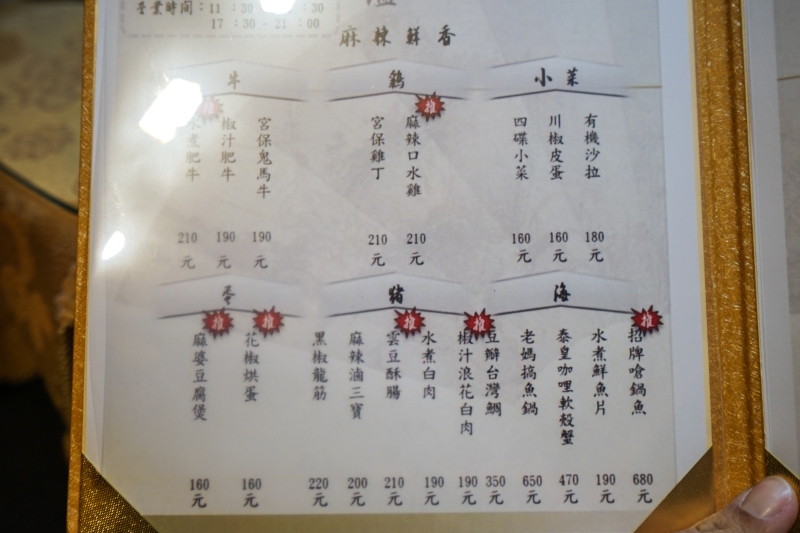 營業時間：11：30 - 30
17：30 - 21：00
麻辣鮮香
小菜
有機沙拉 180元
川椒皮蛋 160元
四碟小菜 160元
鷄
麻辣口水雞 210元
推
宮保雞丁 210元
牛
宮保鬼馬牛 190元
椒汁肥牛 190元
水煮肥牛 210元
推
海
招牌嗆鍋魚 680元
推
水煮鮮魚片 190元
泰皇咖哩軟殼蟹 470元
老媽搞魚鍋 650元
豆瓣台灣鯛 350元
豬
椒汁浪花白肉 190元
推
水煮白肉 190元
雲豆酥腸 210元
推
麻辣滷三寶 200元
黑椒龍筋 220元
花椒烘蛋 160元
推
麻婆豆腐煲 160元
推